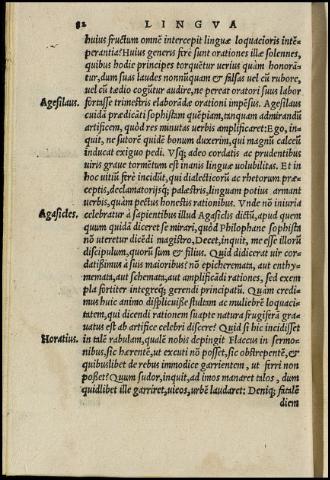 82 LINGVA
huius fructum omnẽ intercepit linguæ loquacioris intẽ-
perantia? Huius generis ferè sunt orationes illæ solennes,
quibus hodie principes torquẽtur uerius quàm honorã-
tur, dum suas laudes nonnũquam & falsas uel cũ rubore,
uel cũ tædio cogũtur audire, ne pereat oratori suus labor
Agesilaus. fortasse trimestris elaborãdæ orationi impẽsus. Agesilaus
cuidã prædicãti sophistam quẽpiam, tanquam admirandũ
artificem, quòd res minutas uerbis amplificaret: Ego, in-
quit, ne sutorẽ quidẽ bonum duxerim, qui magnũ calceũ
inducat exiguo pedi. Vsq; adeo cordatis ac prudentibus
uiris graue tormẽtum est inanis linguæ uolubilitas. Et in
hoc uitiũ ferè incidũt, qui dialecticorũ ac rhetorum præ-
ceptis, declamatorijsq; palæstris, linguam potius armant
uerbis, quàm pectus honestis rationibus. Vnde nõ iniuria
Agasicles. celebratur à sapientibus illud Agasiclis dictũ, apud quem
quum quidã diceret se mirari, quòd Philophane sophista
nõ uteretur dicẽdi magistro, Decet, inquit, me esse illorũ
discipulum, quorũ sum & filius. Quid didicerat uir cor-
datissimus à suis maioribus? nõ epicheremata, aut enthy-
memata, aut schemata, aut amplificãdi rationes, sed exem-
pla fortiter integreq́; gerendi principatũ. Quam credi-
mus huic animo displicuisse stultam ac muliebrẽ loquaci-
tatem, qui dicendi rationem suapte natura frugiferã gra-
uatus est ab artifice celebri discere? Quid si hic incidisset
Horatius. in talẽ rabulam, qualẽ nobis depingit Flaccus in sermo-
nibus, sic hærentẽ, ut excuti nõ posset, sic obstrepentẽ, &
quibuslibet de rebus immodice garrientem, ut ferri non
posset? Quum sudor, inquit, ad imos manaret talos, dum
quidlibet ille garriret, uicos, urbẽ laudaret: Deniq; fatalẽ
diem